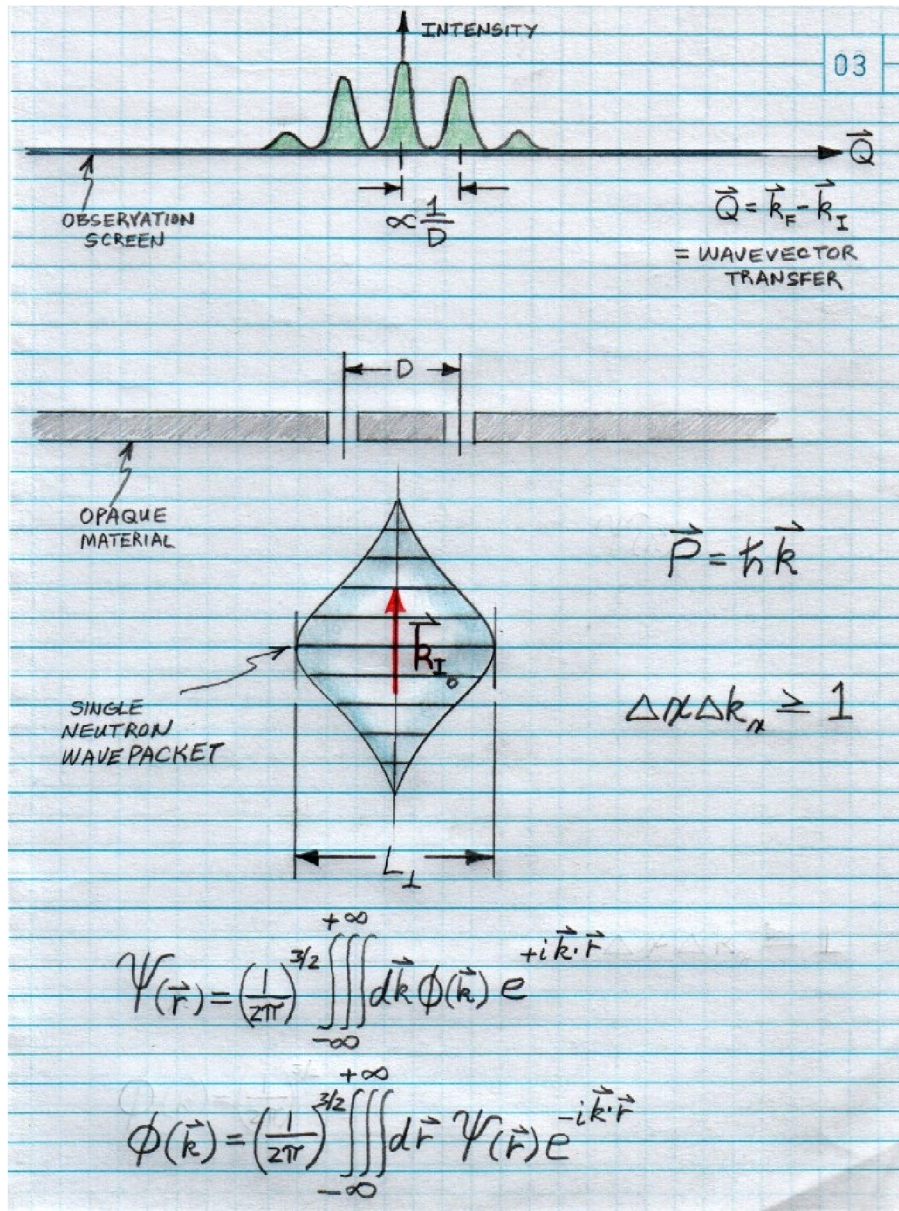 INTENSITY
03
Q⃗
OBSERVATION
SCREEN
∝ 1/D
Q⃗ = k⃗_F - k⃗_I
= WAVEVECTOR
TRANSFER
D
OPAQUE
MATERIAL
P⃗ = ħk⃗
k⃗_I₀
SINGLE
NEUTRON
WAVE PACKET
Δx Δk_x ≥ 1
L_⊥
Ψ(r⃗) = (1/2π)^3/2 ∭_-∞^+∞ dk⃗ ϕ(k⃗) e^+ik⃗·r⃗
ϕ(k⃗) = (1/2π)^3/2 ∭_-∞^+∞ dr⃗ Ψ(r⃗) e^-ik⃗·r⃗